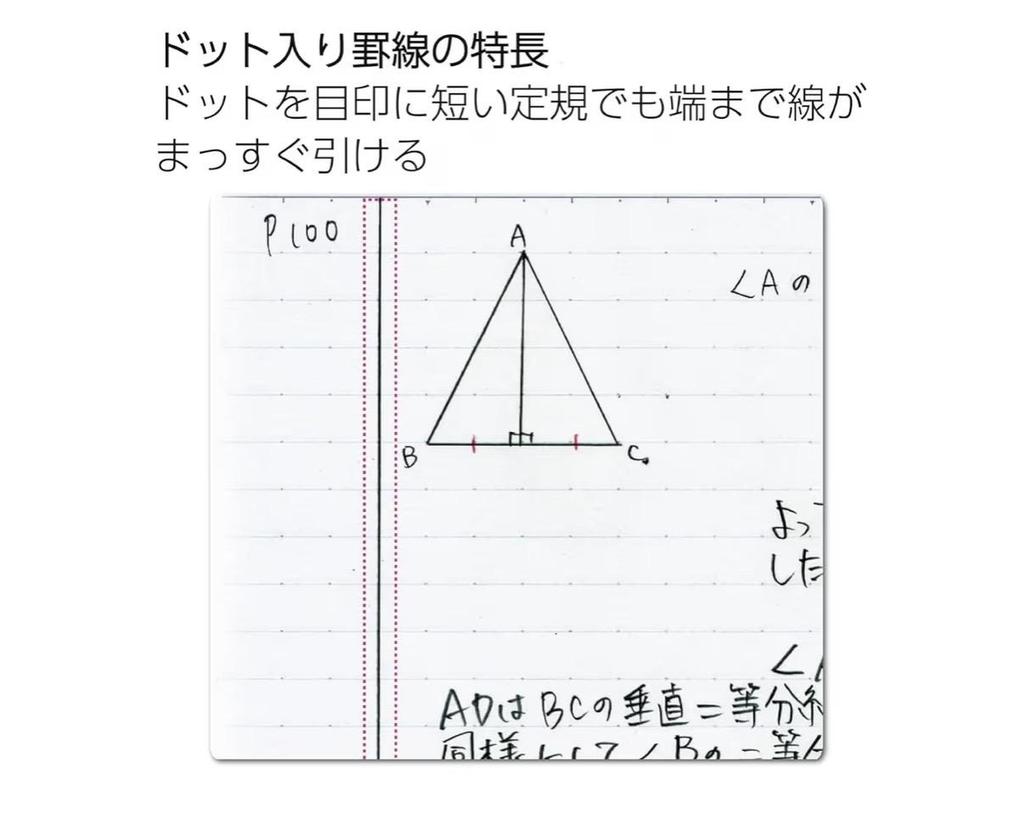 ドット入り罫線の特長
ドットを目印に短い定規でも端まで線が
まっすぐ引ける
P100
A
∠Aの
B
C
よっ
した
∠A
ADはBCの垂直二等分線
同様にして∠Bの二等分